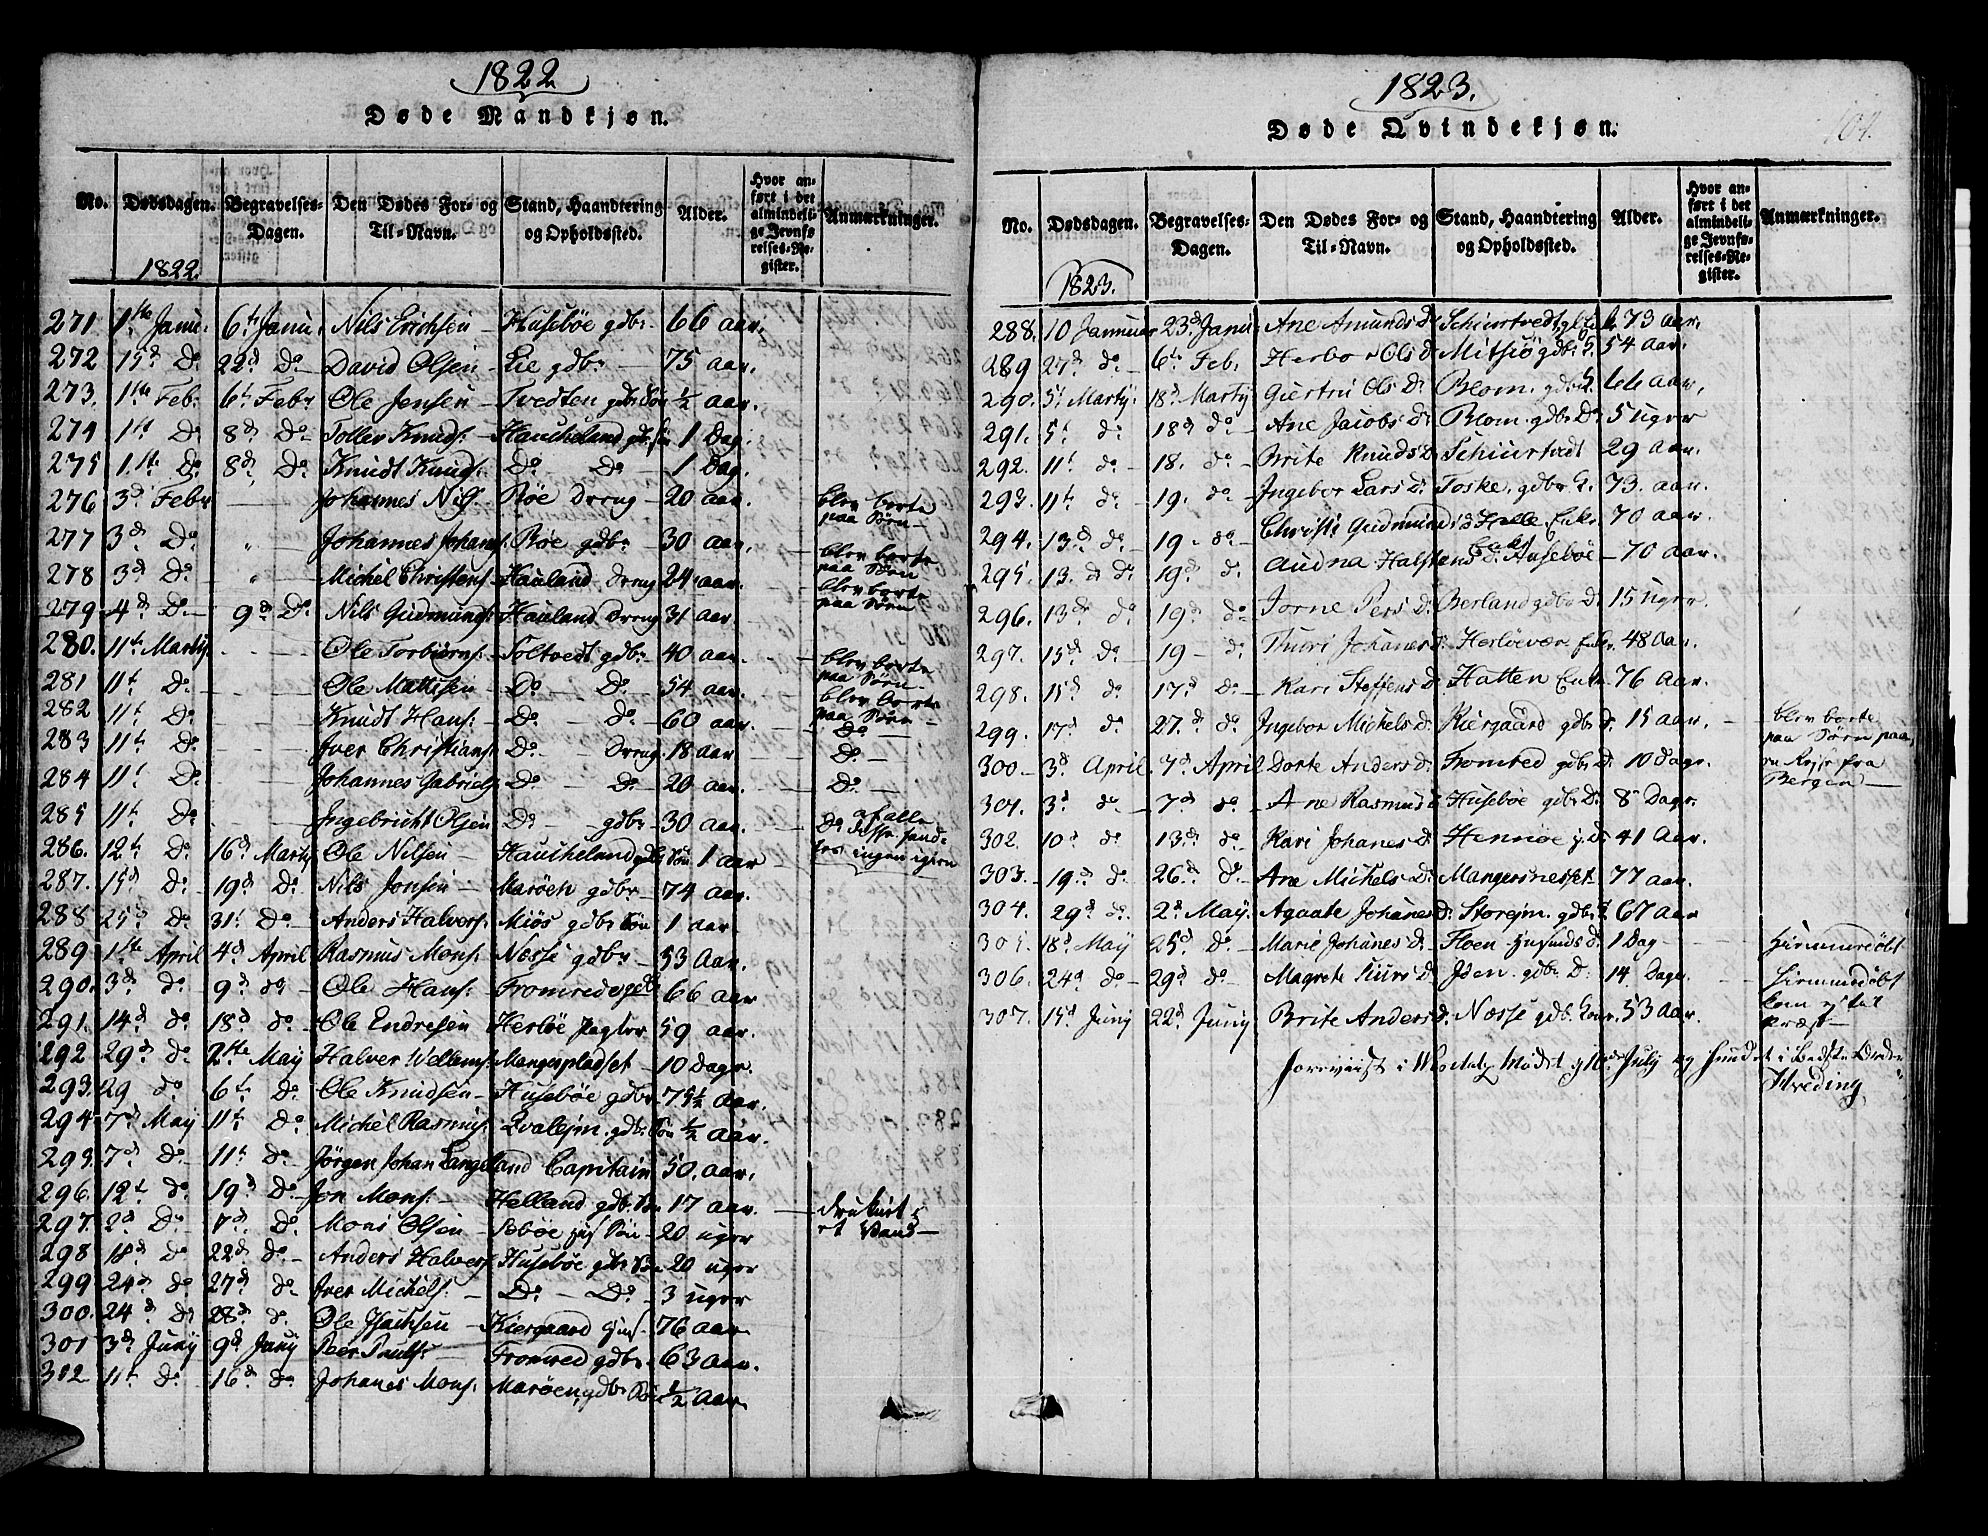 1822
Døde Mandkjøn.
No. Dødsdagen. Begravelses-Dagen. Den Dødes For- og Til-Navn. Stand, Haandtering og Opholdssted. Alder. Hvor anført i det almindelige Jevnførelses-Register. Anmærkninger.
1822.
271 1ste Janu. 6t Janu. Nils Erichsen - Husebøe gdbr. 66 aar.
272 15d Do 22d Do David Olsen - Lie gdbr - 75 aar.
273. 1ste Feb. 6t Febr Ole Jensen - Tvedten gdbr Søn ½ aar.
274 1st Do 8d Do Toller Knuds: - Haucheland gdbr. Søn 1 Dag.
275 1ste Do 8d Do Knudt Knuds: Do Do 1 Dag
276 3d Febr Johannes Nils. Røe Dreng 20 aar. blev borte paa Søen
277 3d Do Johannes Johans. Røe gdbr 30 aar. blev borte paa Søen
278 3d Do Michel Christens. Hauland Dreng 24 aar. blev borte paa Søen
279 4d Do 9d Do Nils Gudmunds: Hauland Dreng 31 aar.
280. 11t Marty Ole Torbiørns: Toltvedt gdbr 40 aar. blev borte paa Søen
281 11t Do Ole Mattisen Do Do 54 aar. blev borte paa Søen
282 11t Do Knudt Hans: Do Do 60 aar. Do
283 11t Do Iver Christians: Do Dreng 18 aar Do
284 11t Do Johannes Gabriels. Do Do 20 aar. Do
285 11t Do Ingebricht Olsen Do gdbr 30 aar. Do af alle disse fandtes ingen igien
286. 12t Do 16d Marty Ole Nilsen - Haucheland gdbr Søn 1 aar
287. 15d Do 19d Do Nils Jonsen - Marøen gdbr 74 aar.
288 25d Do 31t Do Anders Halvers: Miøs gdbr Søn 1 aar
289 1ste April 4d April Rasmus Mons: Nesse gdbr 53 Aar.
290. 3d do 9d do Ole Hans: Fromredes gdbr 66 aar
291. 14d do 18d do Ole Endresen Herløe 59 aar.
292 29d do 2de May Halver Wellems: Mangerpladset 10 Dage.
293. 29 do 6t Do Ole Knudsen Husebøe gdbr 75½ aar.
294. 7d May 11t Do Michel Rasmus: Qvalejm. gdbr Søn ½ aar.
295 7d Do 11t Do Jørgen Johan Langeland Capitain 50. aar.
296. 12t do 19d Do Jon Mons: Helland gdbr Søn 17 aar. druknet i et Vand
297. 2d Do 7d Do Mons Olsen Bøe Søn 20 uger
298 18d Do 22d do Anders Halvers. Husebøe gdbr Søn 20 uger
299 24d do 27d do Iver Michels: Do Do 3 uger
300. 24d do 28d do Ole Isachsen Kiergaard 76 aar
301 3d Juny 9d Juny Peer Pouls: Fromred gdbr. 63 aar.
302 11t do 16d do Johanes Mons: Marøen gdbr Søn ½ aar.
1823.
Døde Qvindekjøn.
104.
No. Dødsdagen. Begravelses-Dagen. Den Dødes For- og Til-Navn. Stand, Haandtering og Opholdssted. Alder. Hvor anført i det almindelige Jevnførelses-Register. Anmærkninger.
1823.
288. 10 Januar 23d Janu Ane Amunds D. Schiurtvedt 73 aar.
289 27d do 6t Feb. Herbor Ols d. Mitsiø gdbr. 54 aar.
290. 5t Marty. 18d Marty Giertru Ols D. Blom. gdbr. 66 aar.
291. 5t do 18d do Ane Jacobs D. Blom. gdbr. D. 5 uger
292. 11t do 18. do Brite Knuds D. Schiurtvedt 29 aar.
293. 11t do 19. do Ingebor Lars D. Toske. gdbr 73. aar.
294. 13d do 19 do Christi Gudmunds d. Helle Enke 70 aar
295. 13. d Do 19d do Audna Halstens d. Husebøe Enke 70 aar.
296. 13d do 19d do Jorne Pers D. Berland gdbr D. 15 uger.
297. 15d Do 19 do Thuri Johanes d. Herløevær Enke. 48 Aar.
298. 15d do 17d do Kari Steffens d. Hatten Enke 76 Aar.
299. 17d do 27d do Ingebor Michels d. Kiergaard gdbr d. 15 aar. blev borte paa Søen paa en Reise fra Bergen
300 3d April. 7d April Dorte Anders d. Fromred gdbr D. 10 Dage.
301. 3d do 7d do Ane Rasmus d. Husebøe gdbr D. 8 Dage.
302. 10d do 13d do Kari Johanes d. Hennøe g. D. 41 Aar.
303. 19d do 26d do Ane Michels D. Mangersnesset 77 aar.
304. 29d do 2d May. Agaate Johanes d. Storejm. gdbr. 67 aar
305. 18d May 25d Do Marie Johanes d. Floen Husmds d. 1 Dag Hiemmedøbt
306. 24d do 29d do Magrete Siurs d. Iden. gdbr D. 14 Dage. Hiemmedøbt kom ej til Præst
307. 15d Juny 22d Juny Brite Anders d. Nesse gdbr. 53 aar.
Foreviist i Mødet July og funden i Beste Orden
Hveding